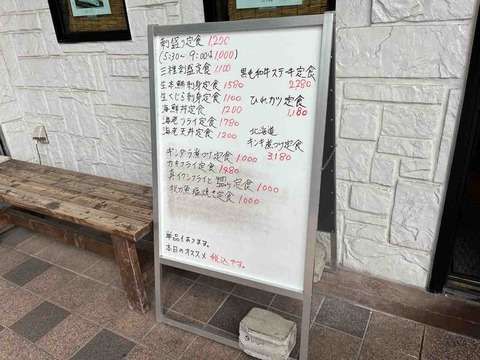 刺盛り定食 1,200
(5:30〜9:00は1,000)
三種刺盛定食 1,100
生本鮪刺身定食 1580
生くじら刺身定食 1100
海鮮丼定食 1200
海老フライ定食 1780
海老天丼定食 1200
黒毛和牛ステーキ定食
2,280
ひれカツ定食
1,180
北海道
キンキ煮つけ定食
3,180
ギンダラ煮つけ定食 1000
カキフライ定食 1480
真イワシフライと 定食 1000
秋刀魚塩焼き定食 1000
単品もあります。
本日のオススメ 税込です。